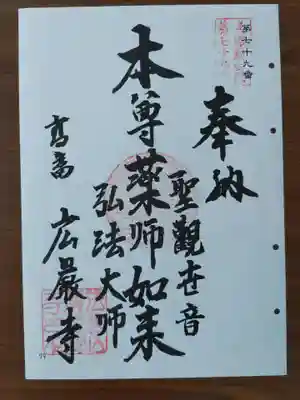 第七十九番
奉納
聖觀世音
本尊薬師如来
弘法大師
広巖寺